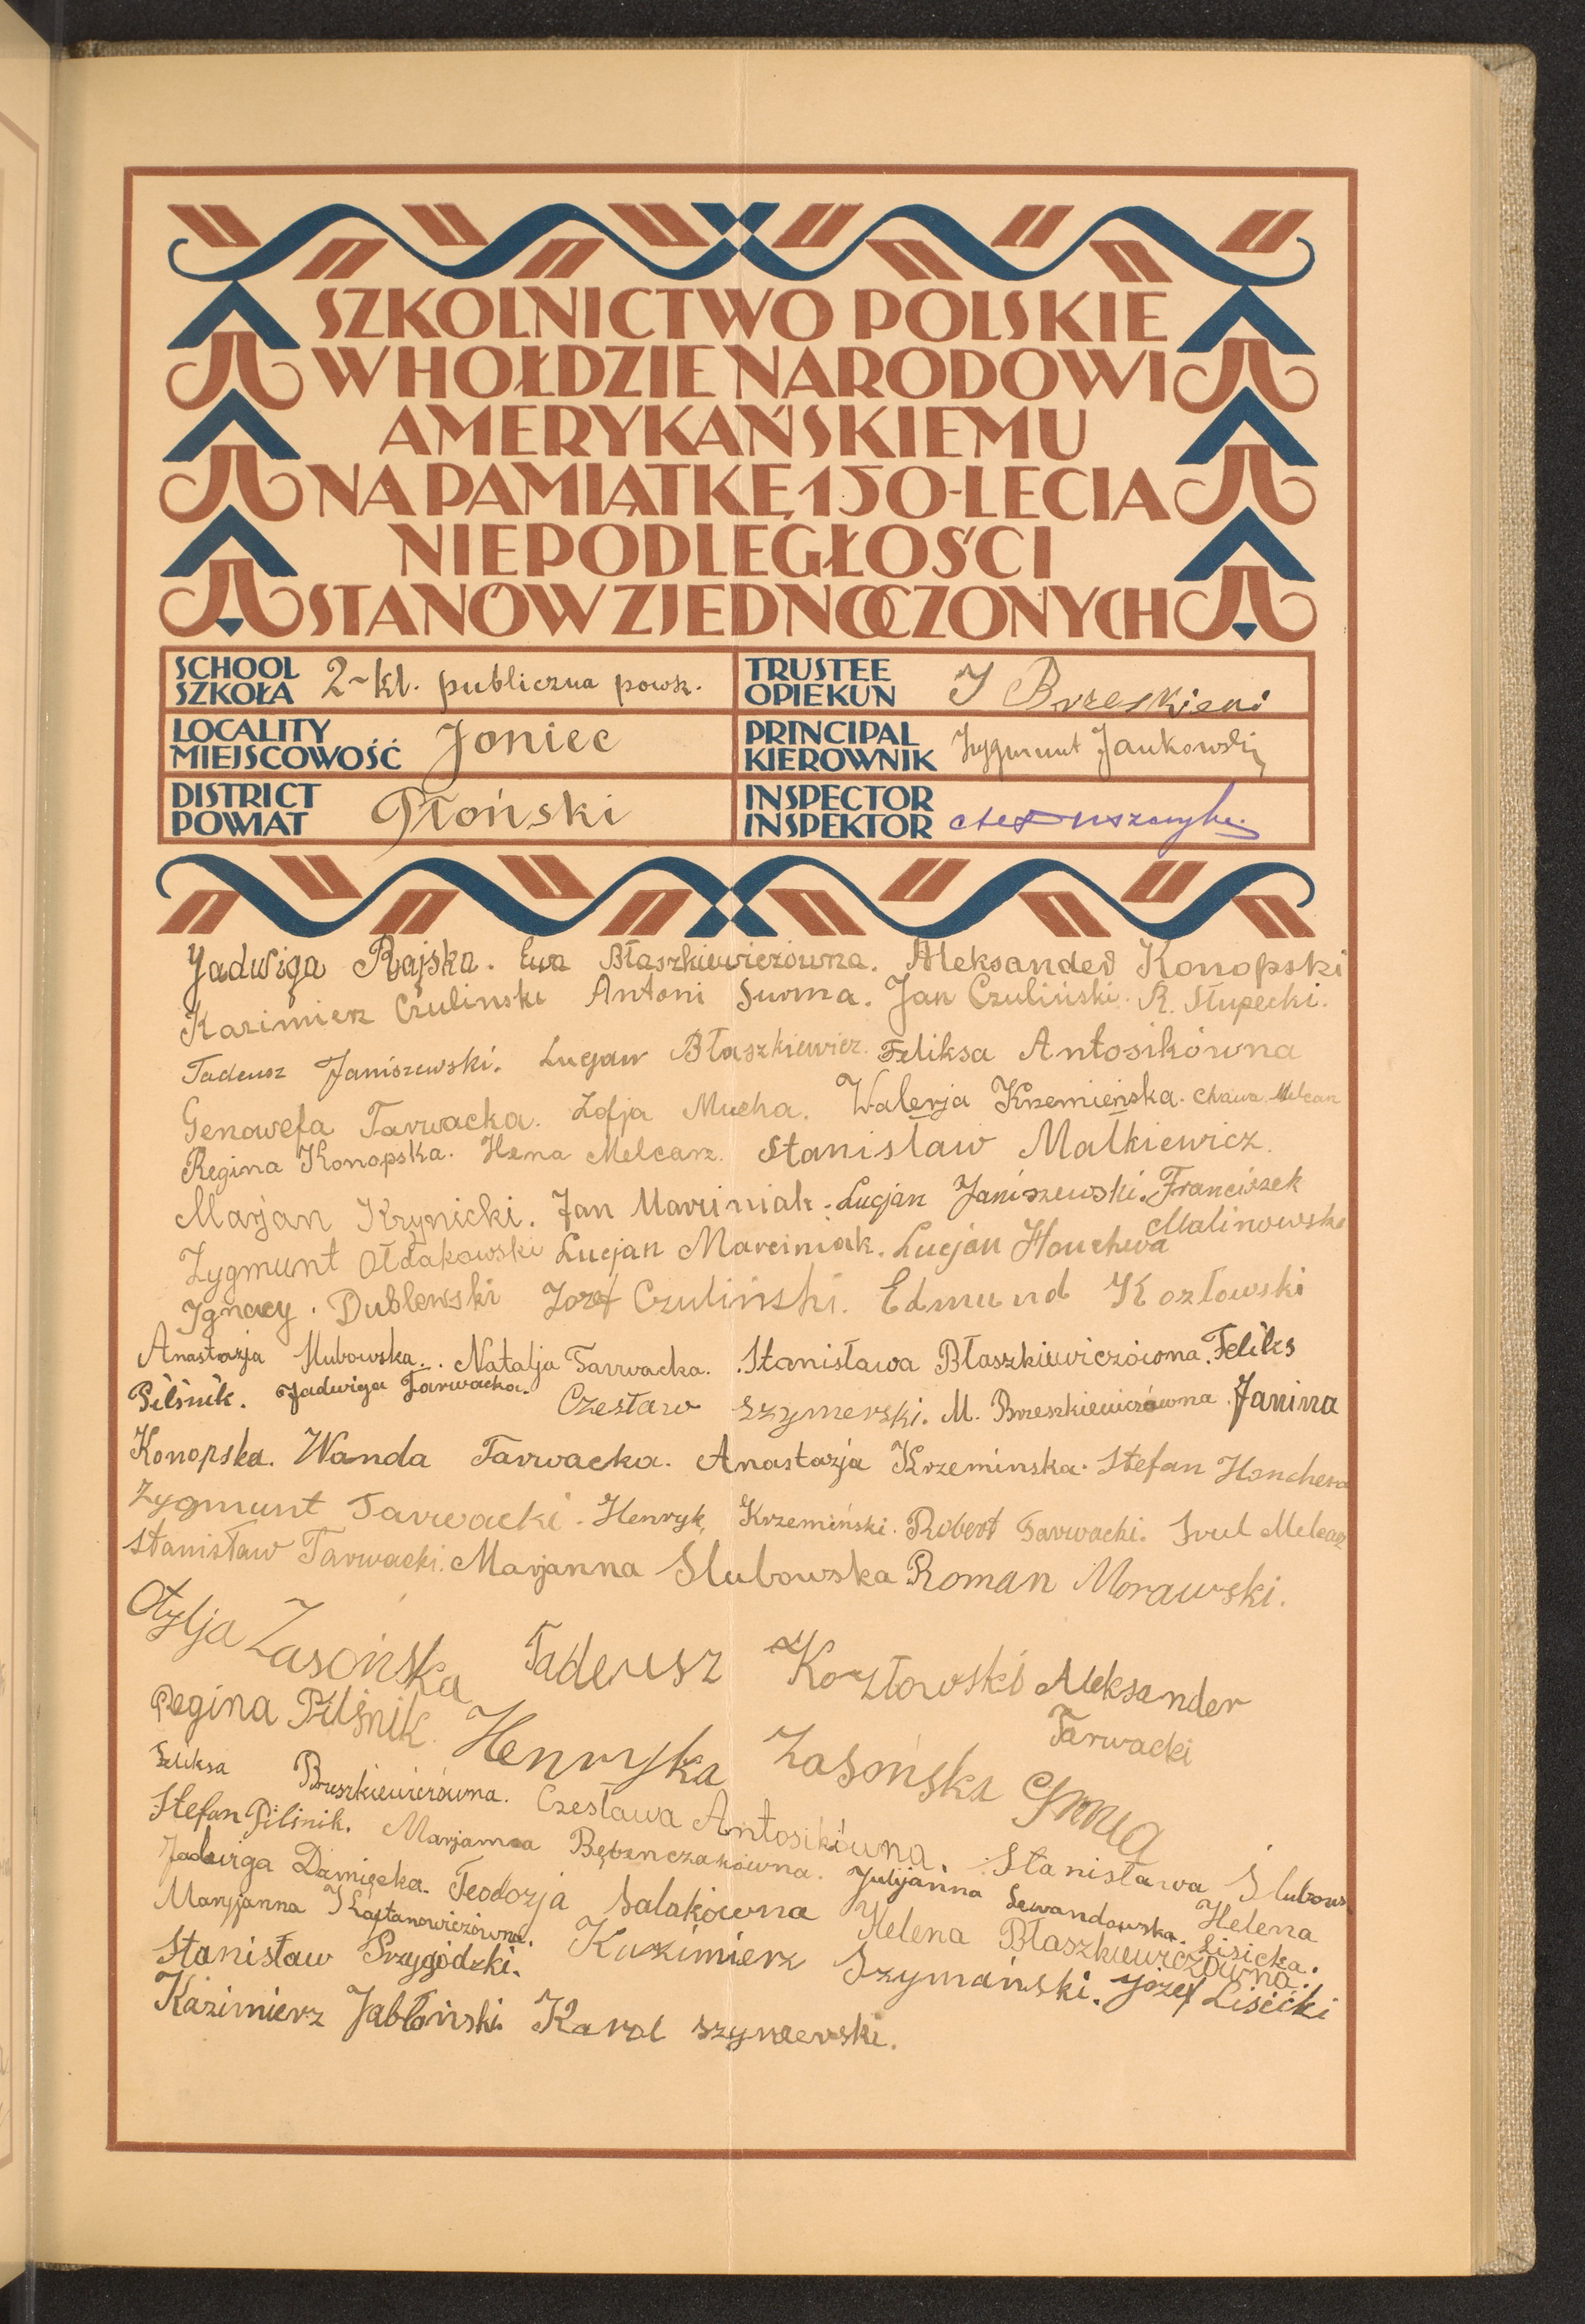 SZKOLNICTWO POLSKIE
W HOŁDZIE NARODOWI
AMERYKAŃSKIEMU
NA PAMIĄTKĘ 150-LECIA
NIEPODLEGŁOŚCI
STANÓW ZJEDNOCZONYCH
SCHOOL
SZKOŁA 2-kl. publiczna powsz.
TRUSTEE
OPIEKUN J
LOCALITY
MIEJSCOWOŚĆ Joniec
PRINCIPAL
KIEROWNIK Zygmunt Jankowski
DISTRICT
POWIAT Płoński
INSPECTOR
INSPEKTOR
Jadwiga Rajska. Ewa Błaszkiewiczówna. Aleksander Konopski
Kazimierz Czulinski Antoni Surma. Jan Czuliński. R. Słupecki.
Tadeusz Janiszewski. Lucjan Błaszkiewicz. Feliksa Antosikówna
Genowefa Tarwacka. Zofja Mucha. Walerja Krzemieńska. Chawa
Regina Konopska. Hena Melcarz. Stanisław Małkiewicz.
Marjan Krynicki. Jan Marciniak. Lucjan Janiszewski. Franciszek
Malinowski
Zygmunt Ołdakowski Lucjan Marciniak. Lucjan Honchera
Ignacy. Dublewski Józef Czuliński. Edmund Kozłowski
Anastazja Słubowska. . Natalja Tarwacka. Stanisława Błaszkiewiczówna. Feliks
Pilśnik. Jadwiga Tarwacka. Czesław Szymerski. M. Brzeszkiewiczówna. Janina
Konopska. Wanda Tarwacka. Anastazja Krzeminska. Stefan Honchera
Zygmunt Tarwacki. Henryk Krzemiński. Robert Tarwacki. Srul Melcarz
Stanisław Tarwacki. Marjanna Slubowska Roman Morawski.
Otylja Zasońska Tadeusz Kozłowski Aleksander
Tarwacki
Regina Pilśnik. Henryka Zasońska
Feliksa Brzeszkiewiczówna. Czesława Antosikówna. Stanisława Slubows
Stefan Pilśnik. Marjanna Bębenczakówna. Julijanna Lewandowska. Helena
Lisicka.
Jadwiga Damięcka. Teodozja Salakówna Helena Błaszkiewiczówna.
Maryjanna Kajtanowiczówna. Kazimierz Szymański. Józef Lisicki
Stanisław Przygódzki.
Kazimierz Jabłoński Karol Szymerski.